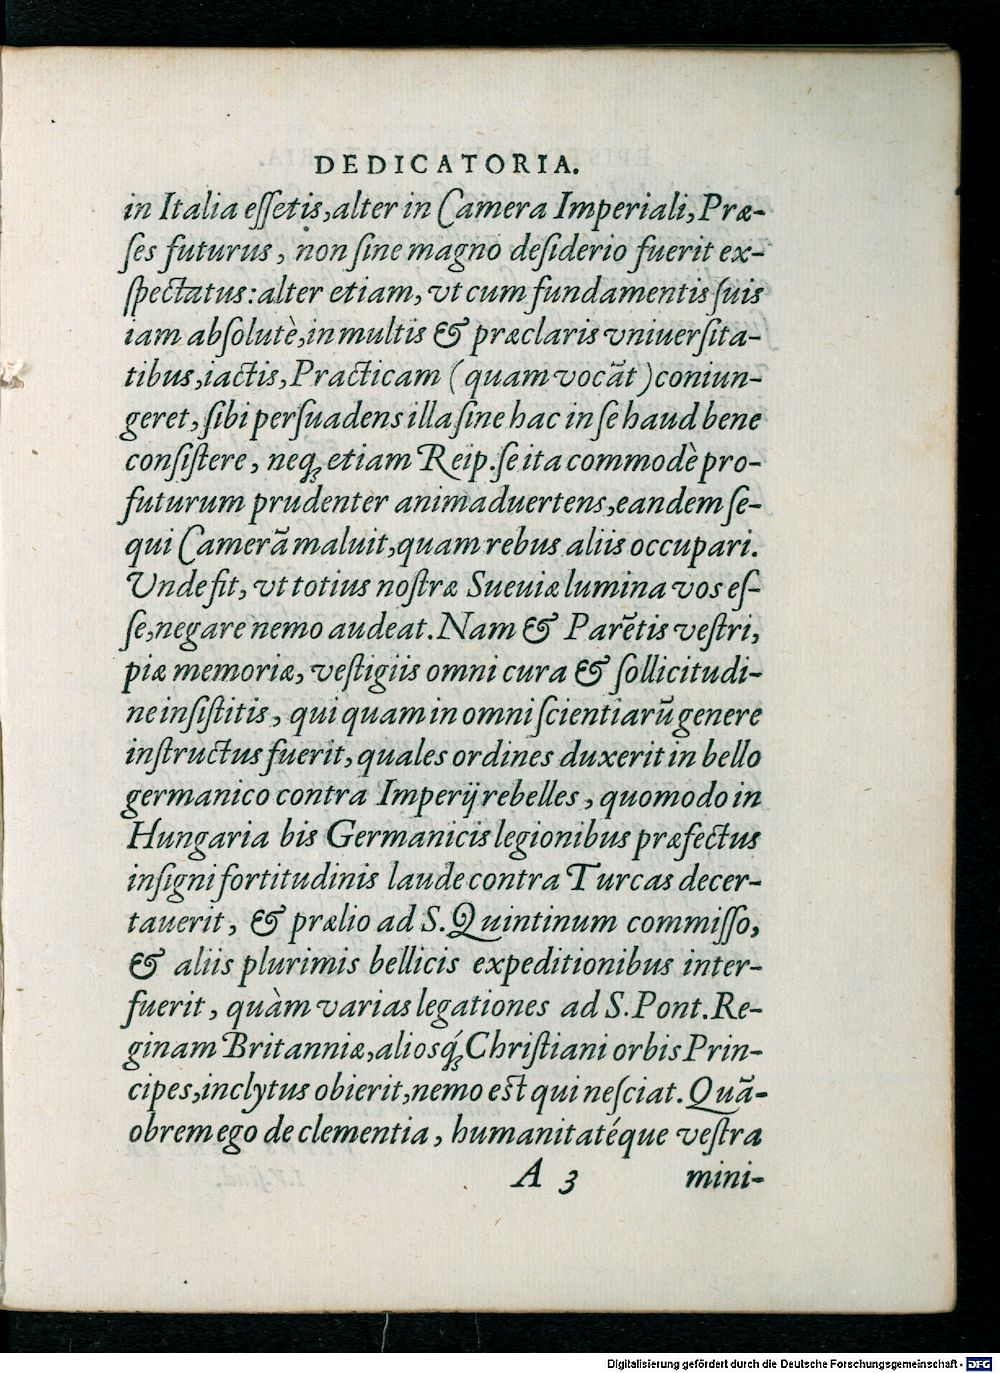 DEDICATORIA.
in Italia eſſetis, alter in Camera Imperiali, Præ-
ſes futurus, non ſine magno deſiderio fuerit ex-
ſpectatus: alter etiam, vt cum fundamentis ſuis
iam abſolutè, in multis & præclaris vniuerſita-
tibus, iactis, Practicam (quam vocãt) coniun-
geret, ſibi perſuadens illa ſine hac in ſe haud bene
conſiſtere, neqꝫ etiam Reip. ſe ita commodè pro-
futurum prudenter animaduertens, eandem ſe-
qui Camerã maluit, quam rebus aliis occupari.
Unde fit, vt totius noſtræ Sueuiæ lumina vos eſ-
ſe, negare nemo audeat. Nam & Parẽtis veſtri,
piæ memoriæ, veſtigiis omni cura & ſollicitudi-
ne inſiſtitis, qui quam in omni ſcientiarũ genere
inſtructus fuerit, quales ordines duxerit in bello
germanico contra Imperij rebelles, quomodo in
Hungaria bis Germanicis legionibus præfectus
inſigni fortitudinis laude contra Turcas decer-
tauerit, & prælio ad S. Quintinum commiſſo,
& aliis plurimis bellicis expeditionibus inter-
fuerit, quàm varias legationes ad S. Pont. Re-
ginam Britanniæ, aliosq́ꝫ Chriſtiani orbis Prin-
cipes, inclytus obierit, nemo est qui neſciat. Quã-
obrem ego de clementia, humanitatéque veſtra
A 3 mini-
Digitalisierung gefördert durch die Deutsche Forschungsgemeinschaft - DFG